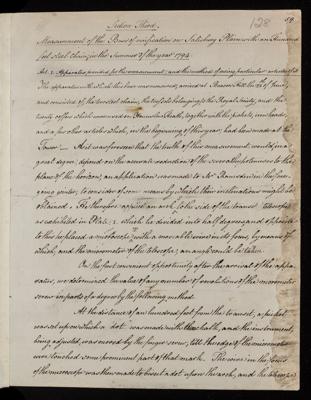 128
59
Section Third.
Measurement of the Base of verification on Salisbury Plain with an Hundred
feet steel chain, in the summer of the year 1794.
Art. 1. Apparatus provided for the measurement, and the method of using particular articles of it.
The apparatus with which this base was measured, arrived at Beacon Hill the of June,
and consisted of the two steel chains, the belonging to the Royal Society, and the
twenty coffers which were used on Hounslow Heath, together with the pickets, iron heads,
and a few other articles which, in the beginning of this year, had been made at the
Tower. — As it was foreseen that the truth of this measurement would in a
great degree depend on the accurate reduction of the several hypotenuses to the
plane of the horizon, an application was made to Mr Ramsden in the fore-
going winter, to consider of some means by which their inclinations might be
obtained. He therefore applied an arch, to the side of the transit telescope
as exhibited in Plate 2 which he divided into half degrees, and opposite
to this he placed a microscope, with a moveable wire in its focus, by means of
which, and the micrometer of the telescope, an angle could be taken.
On the first convenient opportunity after the arrival of the appa-
ratus, we determined the value of any number of revolutions of the micrometer
screw in parts of a degree by the following method.
At the distance of an hundred feet from the transit, a picket
was set up on which a dot was made with chalk, and the instrument,
being adjusted, was moved by the finger screw, till the edge of the micrometer
wire touched some prominent part of that mark. The wire in the focus
of the microscope was then made to bisect a dot upon the arch, and the telescope